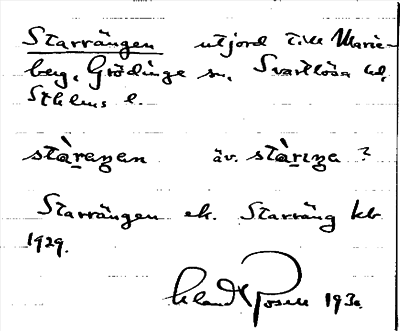 Starrängen utjord till Marie-
berg, Grödinge sn, Svartlösa hd,
Sthlms l.
stàreŋen äv. stàriŋa ?
Starrängen ek. Starräng kb
1929.
Rosell 193